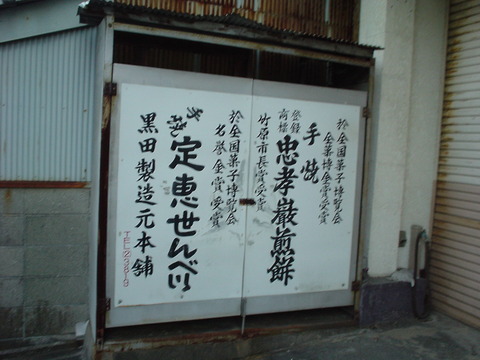 於全国菓子博覧会
全菓博金賞受賞
手焼
登録
商標
忠孝巌煎餅
竹原市長賞受賞
於全国菓子博覧会
名誉金賞受賞
手焼
定恵せんべい
黒田製造元本舗